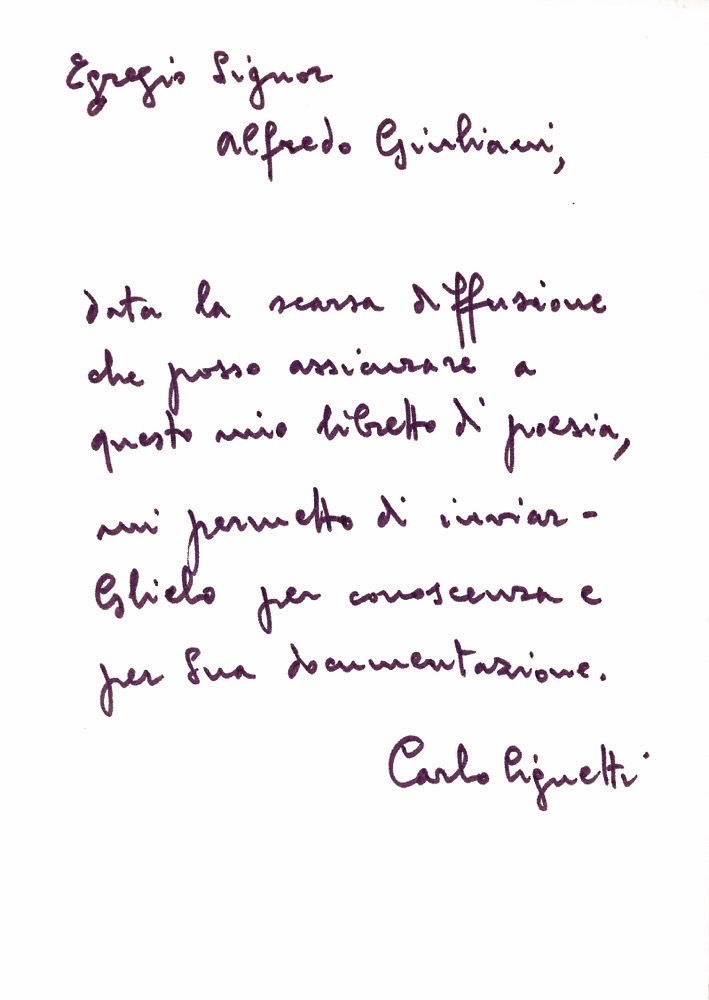 Egregio Signor
Alfredo Giuliani,
data la scarsa diffusione
che posso assicurare a
questo mio libretto di poesia,
mi permetto di inviar-
Glielo per conoscenza e
per Sua documentazione.
Carlo Lignetti